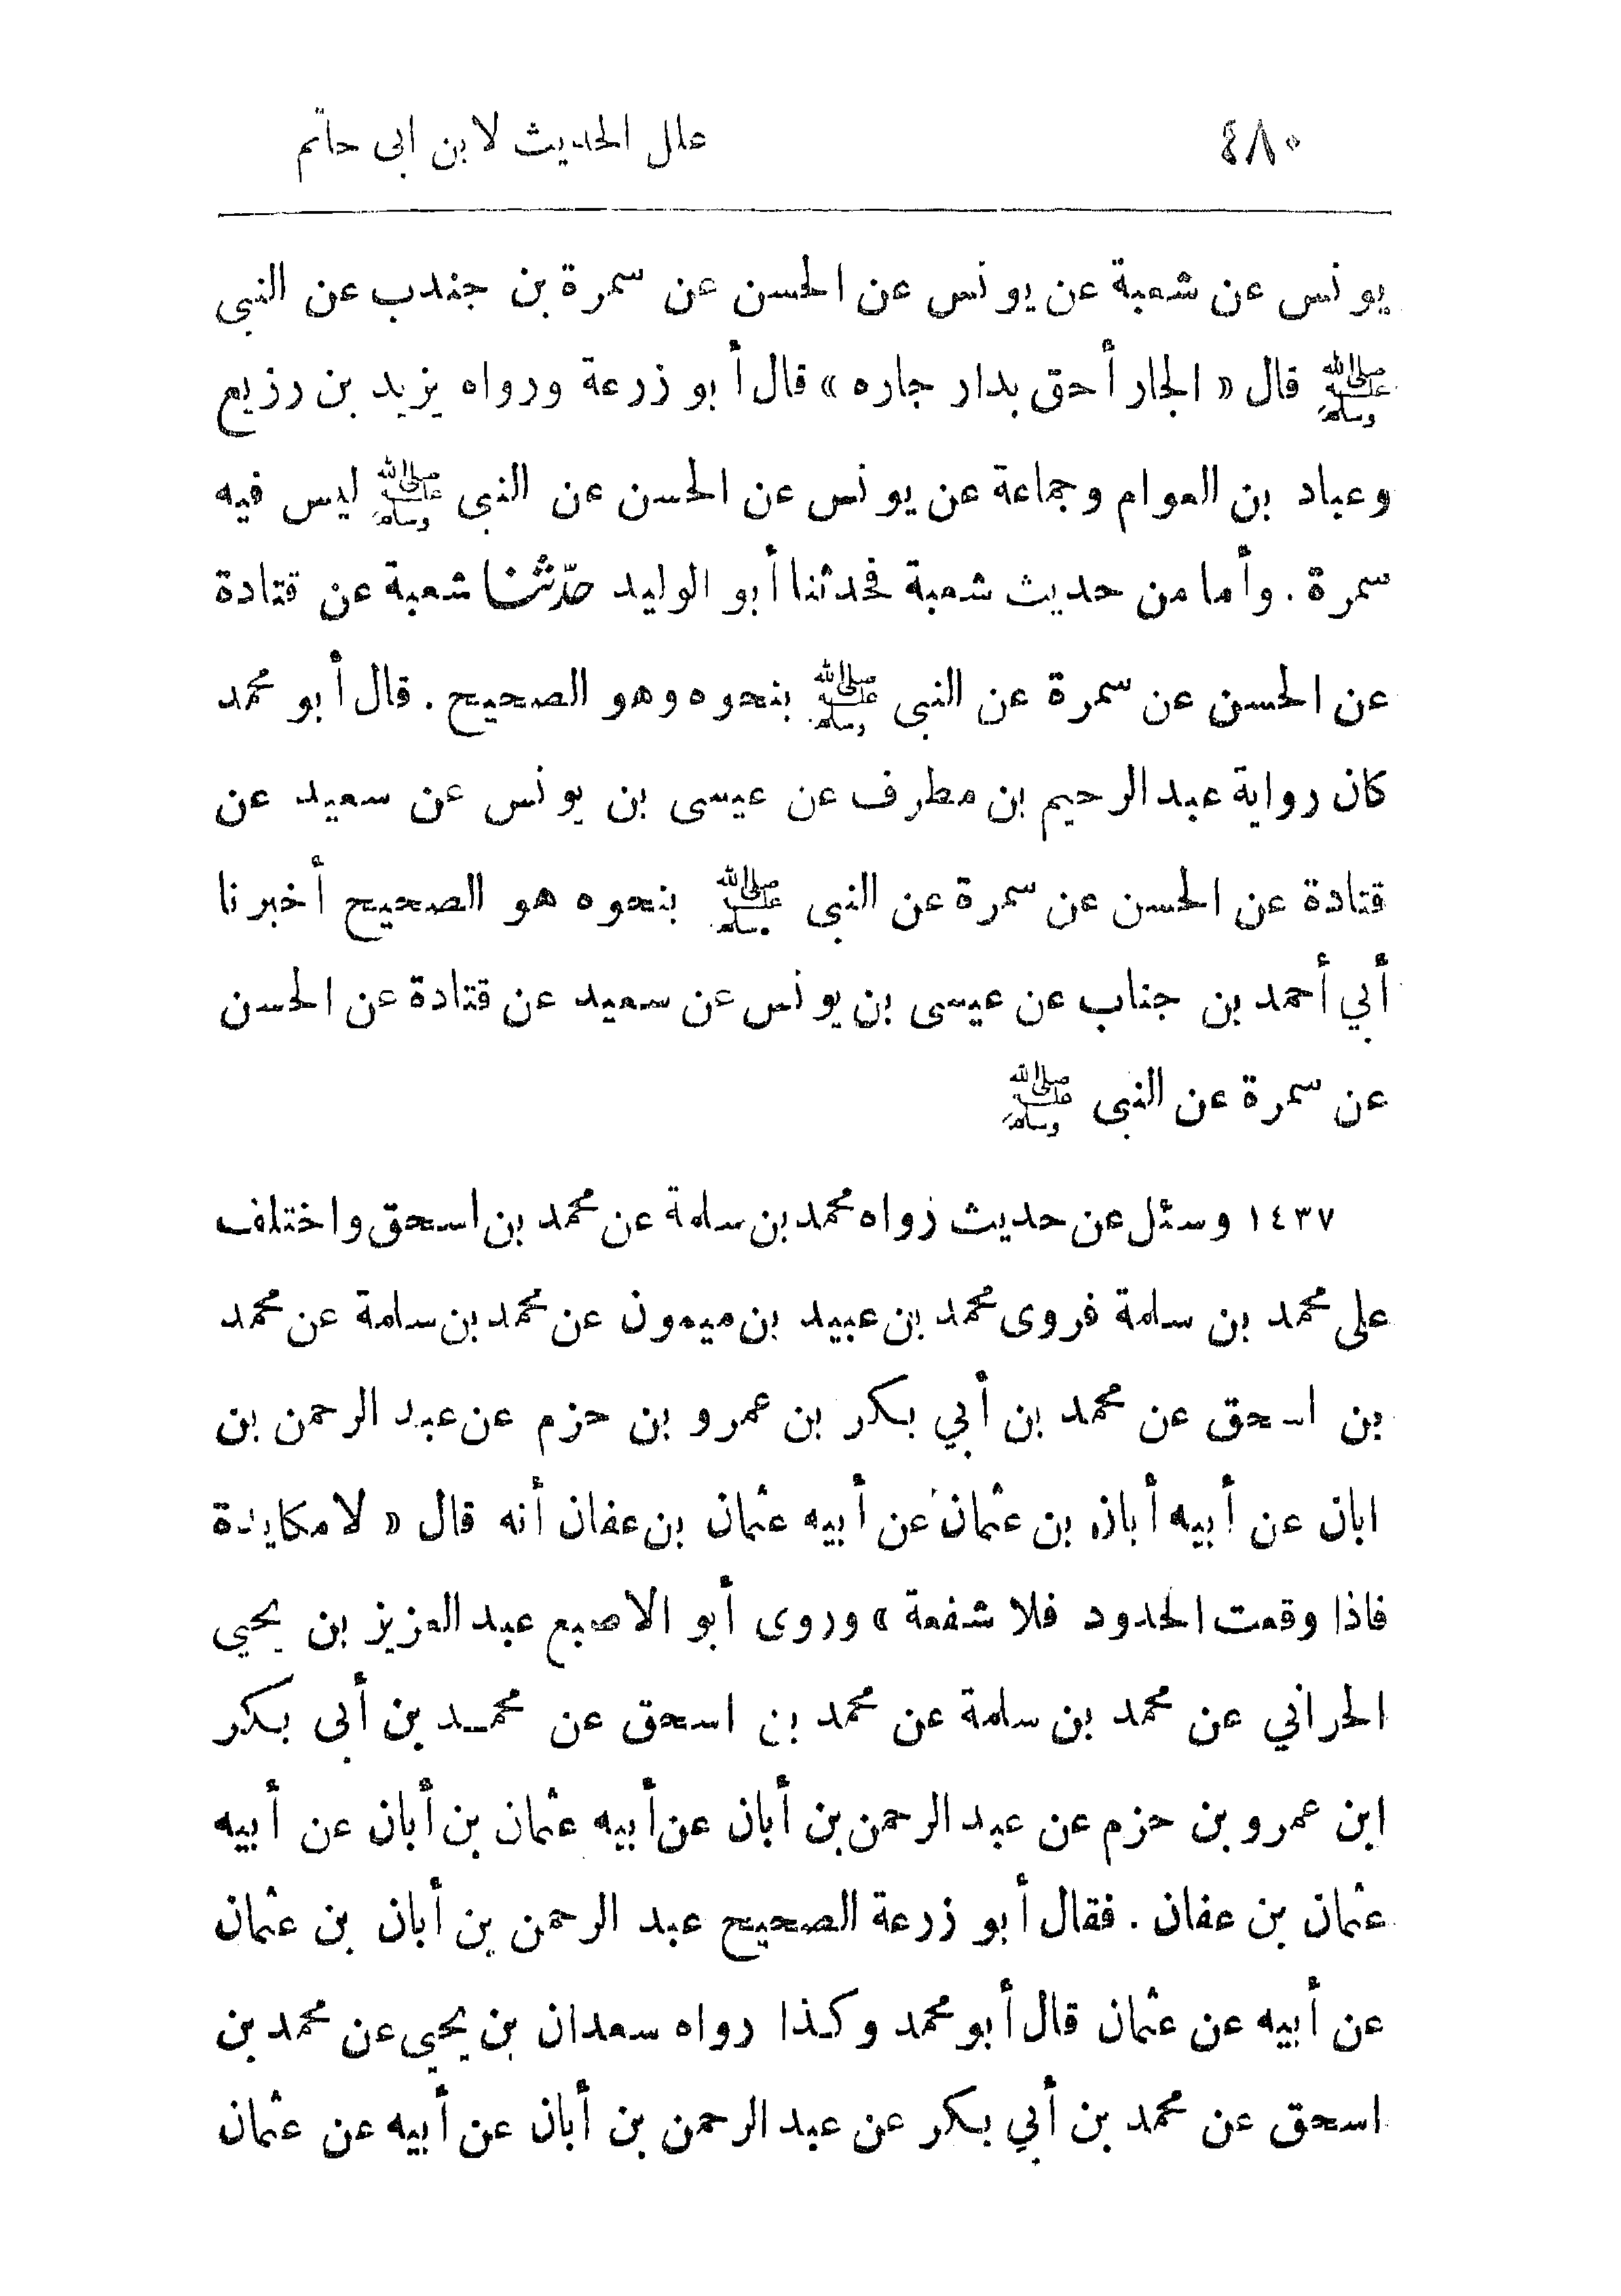 ٤٨٠ علل الحديث لابن ابى حاتم
يونس عن شعبة عن يونس عن الحسن عن سمرة بن جندب عن النبى
ﷺ قال « الجار أحق بدار جاره » قال أبو زرعة ورواه يزيد بن رزيع
وعباد بن العوام وجماعة عن يونس عن الحسن عن النبى ﷺ ليس فيه
سمرة . وأما من حديث شعبة فحدثنا أبو الوليد حدّثنا شعبة عن قتادة
عن الحسن عن سمرة عن النبى ﷺ بنحوه وهو الصحيح . قال أبو محمد
كان رواية عبد الرحيم بن مطرف عن عيسى بن يونس عن سعيد عن
قتادة عن الحسن عن سمرة عن النبى ﷺ بنحوه هو الصحيح أخبرنا
أبي أحمد بن جناب عن عيسى بن يونس عن سعيد عن قتادة عن الحسن
عن سمرة عن النبى ﷺ
١٤٣٧ وسئل عن حديث رواه محمد بن سلمة عن محمد بن اسحق واختلف
على محمد بن سلمة فروى محمد بن عبيد بن ميمون عن محمد بن سلمة عن محمد
بن اسحق عن محمد بن أبي بكر بن عمرو بن حزم عن عبد الرحمن بن
ابان عن أبيه أبان بن عثمان عن أبيه عثمان بن عفان أنه قال « لا مكايدة
فاذا وقعت الحدود فلا شفعة » وروى أبو الاصبع عبد العزيز بن يحيي
الحراني عن محمد بن سلمة عن محمد بن اسحق عن محمد بن أبى بكر
ابن عمرو بن حزم عن عبد الرحمن بن أبان عن أبيه عثمان بن أبان عن أبيه
عثمان بن عفان . فقال أبو زرعة الصحيح عبد الرحمن بن أبان بن عثمان
عن أبيه عن عثمان قال أبو محمد وكذا رواه سعدان بن يحيى عن محمد بن
اسحق عن محمد بن أبي بكر عن عبد الرحمن بن أبان عن أبيه عن عثمان